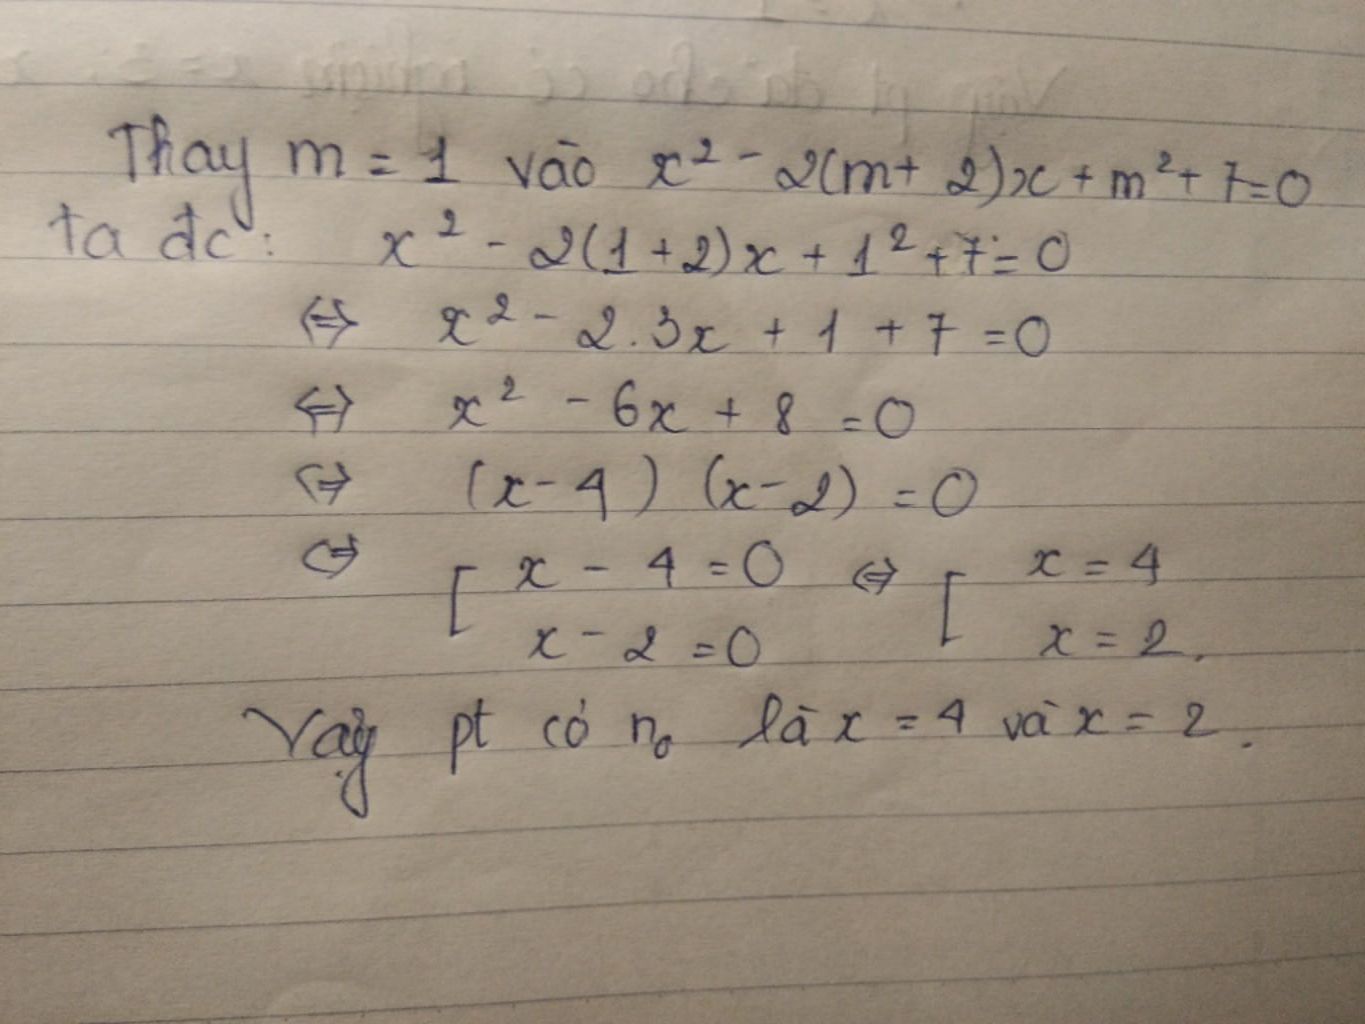 Thay m = 1 vào x² - 2(m + 2)x + m² + 7 = 0
ta đc : x² - 2(1 + 2)x + 1² + 7 = 0
⇔ x² - 2.3x + 1 + 7 = 0
⇔ x² - 6x + 8 = 0
⇔ (x - 4) (x - 2) = 0
⇔ [ x - 4 = 0 ⇔ [ x = 4
x - 2 = 0 x = 2.
Vậy pt có n₀ là x = 4 và x = 2.